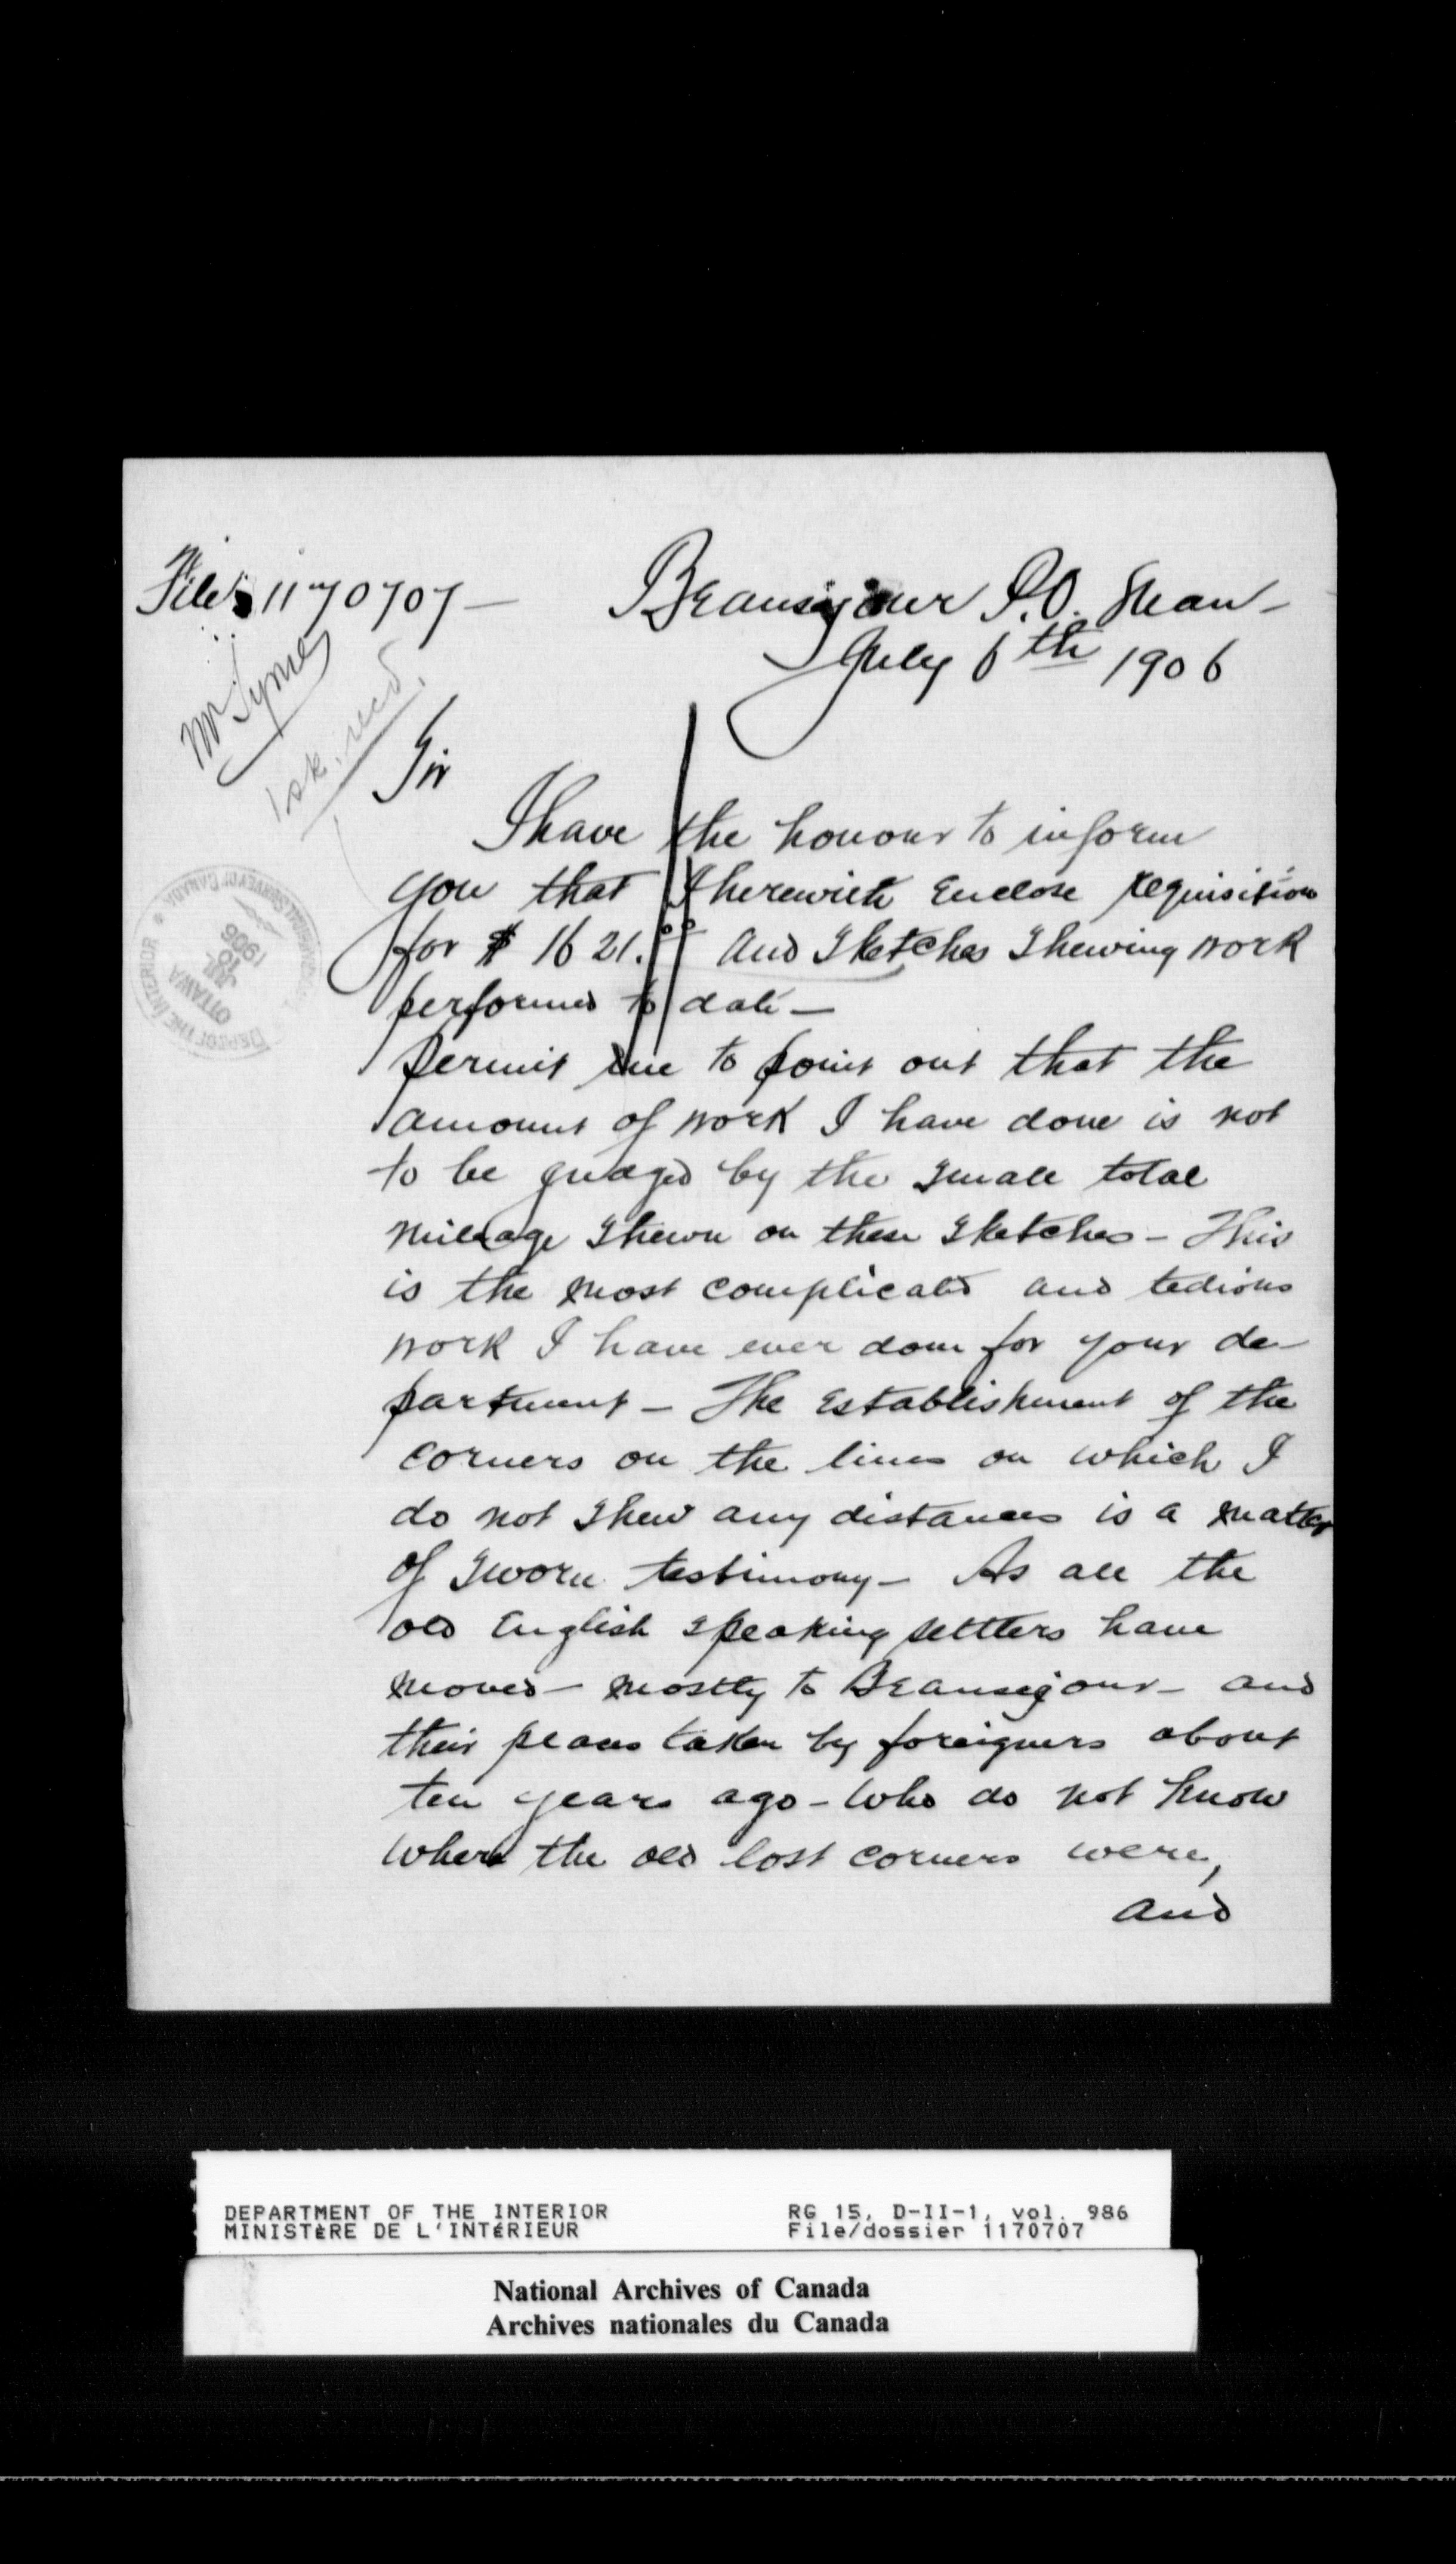 File 1170707 —
Beausejour P.O. Man –
July 6th 1906
Mr Symes
1 sk. recd.
Sir
I have the honour to inform
you that I herewith Enclose requisition
for $ 1621.00 and Sketches Shewing work
performed to date —
permit me to point out that the
amount of work I have done is not
to be judged by the Small total
mileage Shewn on these Sketches – This
is the most complicated and tedious
work I have ever done for your de-
partment – The Establishment of the
corners on the lines on which I
do not Shew any distances is a matter
of Sworn testimony – As all the
old English Speaking settlers have
moved – mostly to Beausejour – and
their places taken by foreigners about
ten years ago – who do not know
where the old lost corners were,
and
DEPT OF THE INTERIOR
TOPOGRAPHICAL SURVEYS OF CANADA
OTTAWA
JUL
10
1906
DEPARTMENT OF THE INTERIOR
MINISTÈRE DE L'INTÉRIEUR
RG 15, D-II-1, vol. 986
File/dossier 1170707
National Archives of Canada
Archives nationales du Canada